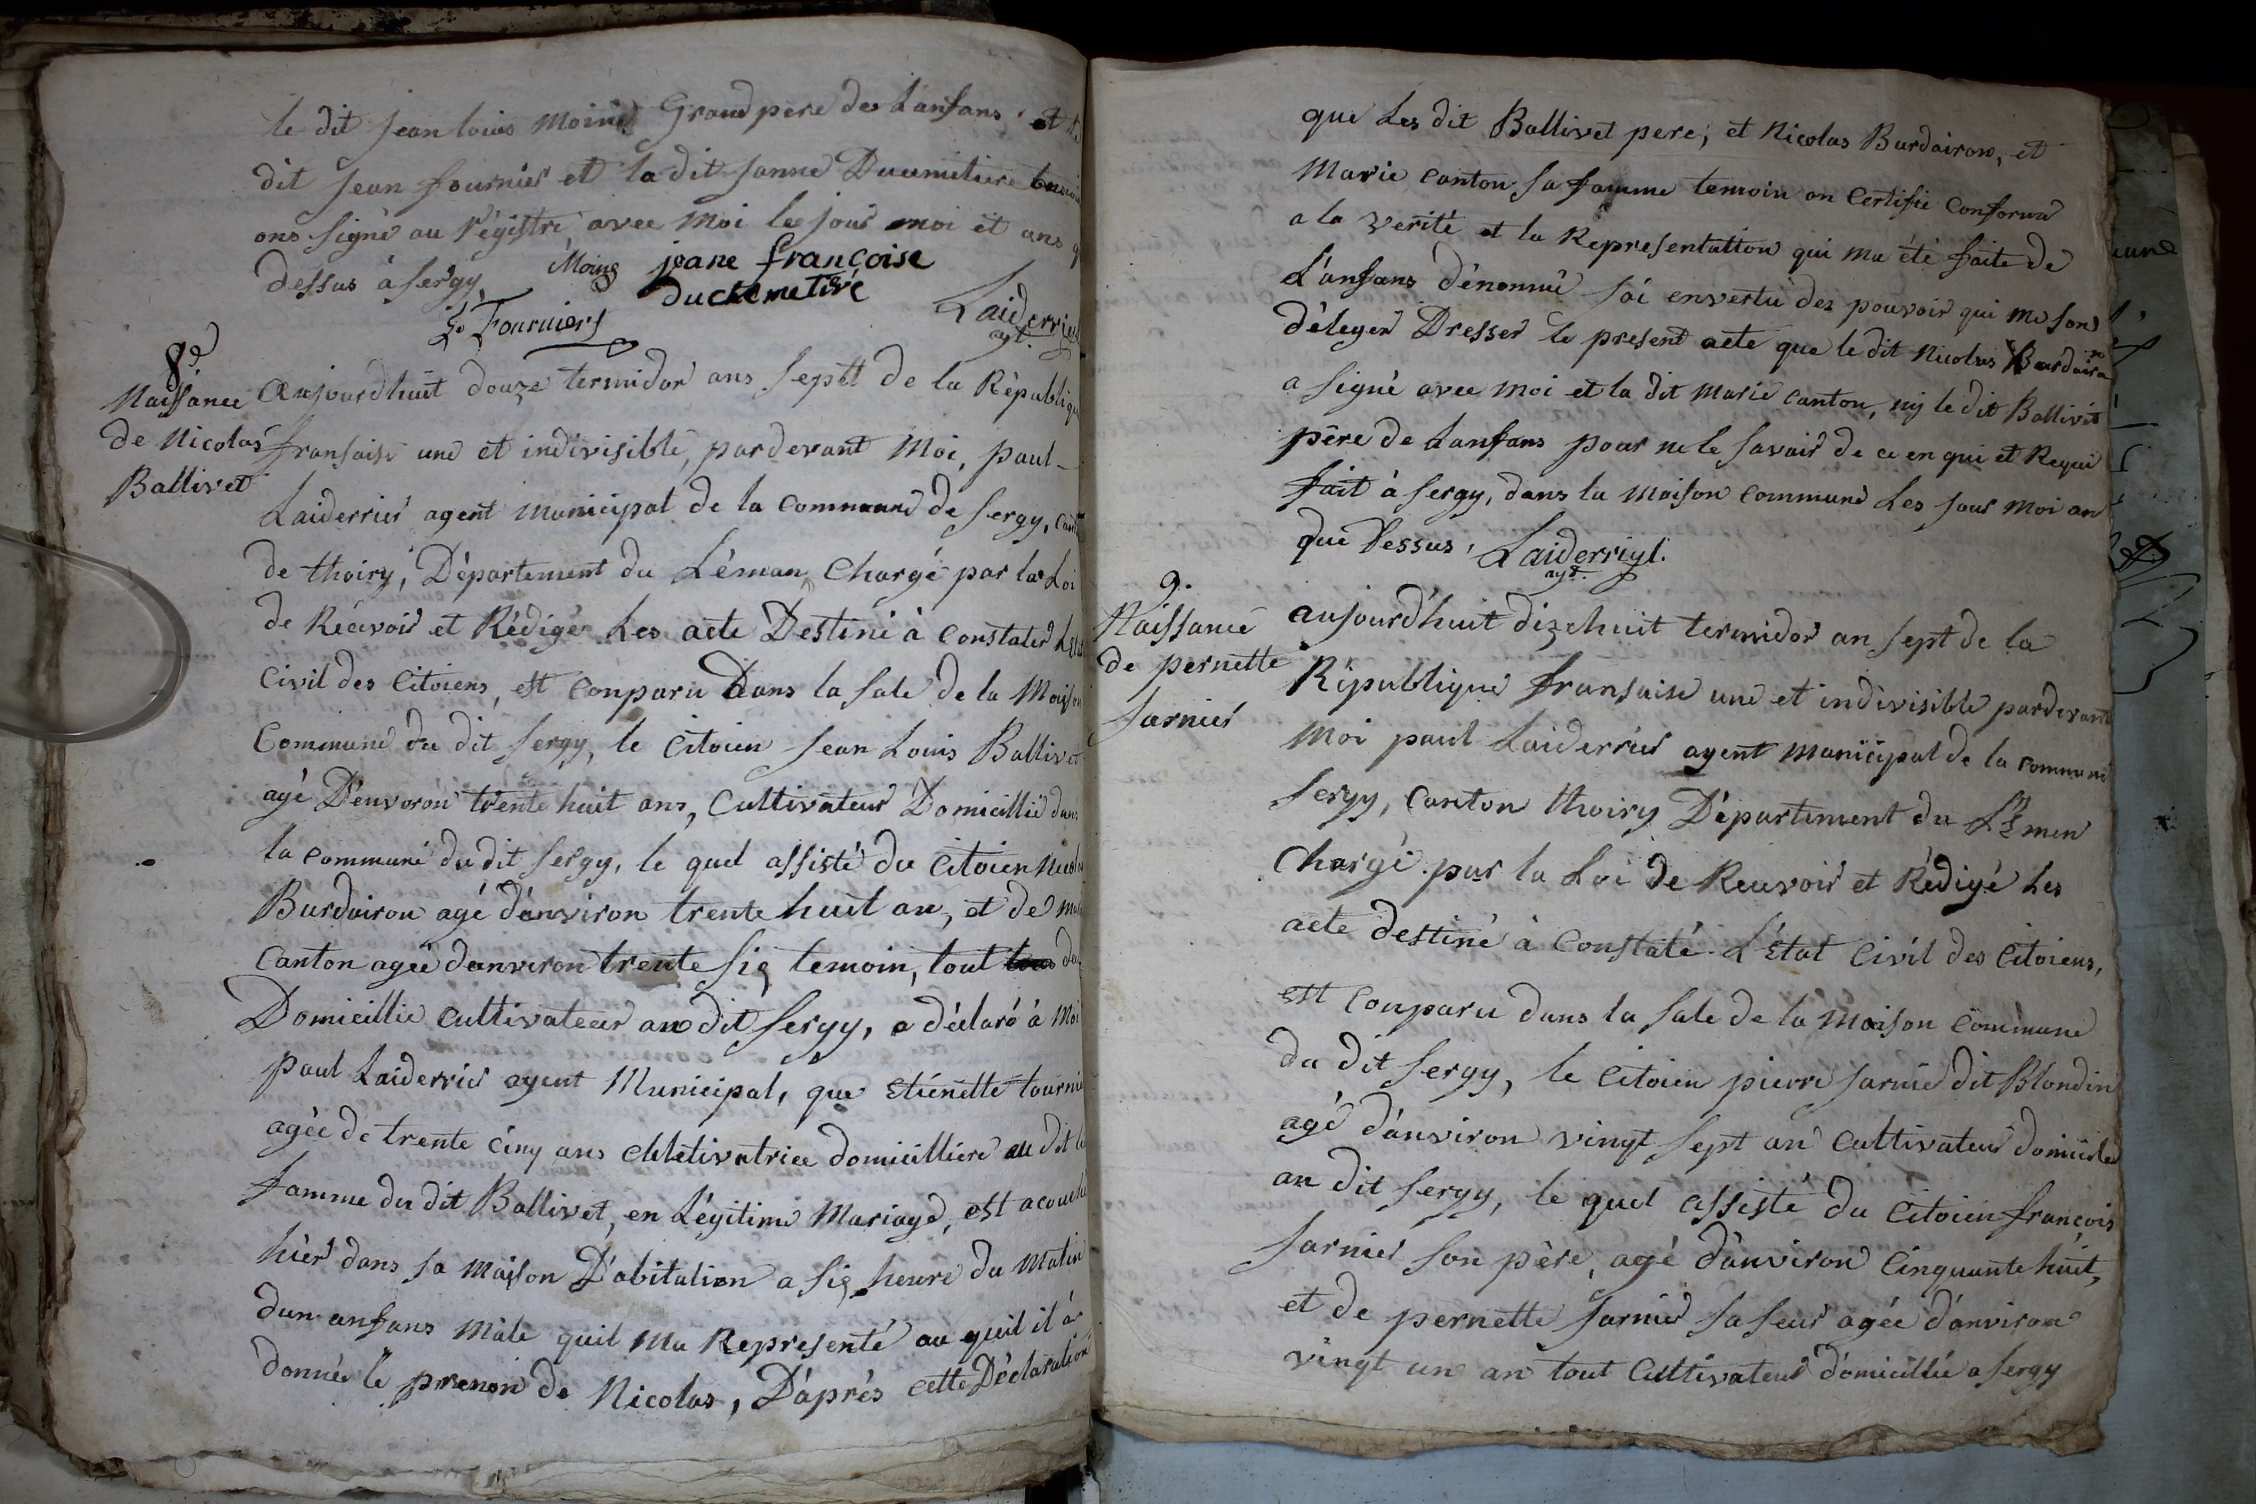 le dit jean louis Moine Grand pere des L'anfans et le
dit jean fournier et la dit janne Ducimetiere temoin
ons Signé au Régistre, avec Moi les jour moi et ans q
dessus à Sergy,
Moine jeane françoise
ducimetiére
Fourniers
Laiderrier
agt.
8e
Naissance
de Nicolas
Ballivet
Aujourdhuit douze termidor ans Septt de la Républiqu
fransaise une et indivisible, pardevant Moi, paul
Laiderrier agent Municipal de la Commune de Sergy, Cant
de thoiry, Département du Léman, Chargé par la Loi
de Récevoir et Rédiger Les acte Destiné à Constater
Civil des Citoiens, est Conparu Dans la Sale de la Maison
Commune du dit Sergy, le Citoien Jean Louis Ballivet
agé D'envoron trente huit ans, Cultivateur Domicillié dans
la Commune du dit Sergy, le quel assisté du Citoien Nicola
Burdairon agé d'anviron trente huit an, et de
Canton agée danviron trente Six temoin, tout
Domicillie Cultivateur au dit Sergy, a déclaré à Moi
paul Laiderrier agent Municipal, que Etiénette fournie
agée de trente Cinq ans Cultivatrice domicilliére au dit
famme du dit Ballivet, en Légitime Mariage, est acouché
hier dans Sa Maison D'abitation a Six heure du Matin
dun anfans Mâle quil Ma Representé au quil il à
donnée le prenon de Nicolas, D'aprés cette Déclaration
que Les dit Ballivet pere, et Nicolas Burdairon, et
Marie Canton Sa famme temoin on Certifié Conforme
a la verité et la Representation qui ma été faite de
L'anfans dénommé j'ai envertu des pouvoir qui me Son
déleger Dresser le present acte que le dit Nicolas Burdairon
a Signé avec Moi et la dit Marie Canton, ny le dit Ballivet
pére de Lanfans pour ne le Savoir de ce en qui et Requi
fait à Sergy, dans la Maison Commune Les jour Moi an
que dessus, Laiderrier
agt.
9.
Naissance
de pernette
jarnier
aujourd'huit dizehuit termidor an Sept de la
République fransaise une et indivisible pardevant
Moi paul Laiderrier agent Municipal de la Commune
Sergy, Canton thoiry Département du Lémen
Chargé par la Loi de Recevoir et Rédigé Les
acte destiné à Constaté L'Etat Civil des Citoiens,
est Conparu dans la Sale de la Maison Commune
du dit Sergy, le Citoien pierre jarnie dit Blondin
agé d'anviron vingt Sept an Cultivateur domicilié
au dit Sergy, le quel assisté du Citoien françois
jarnier Son pére, agé d'anviron Cinquante huit,
et de pernette jarnier Sa Seur agée d'anviron
vingt un an tout Cultivateur domicillié a Sergy